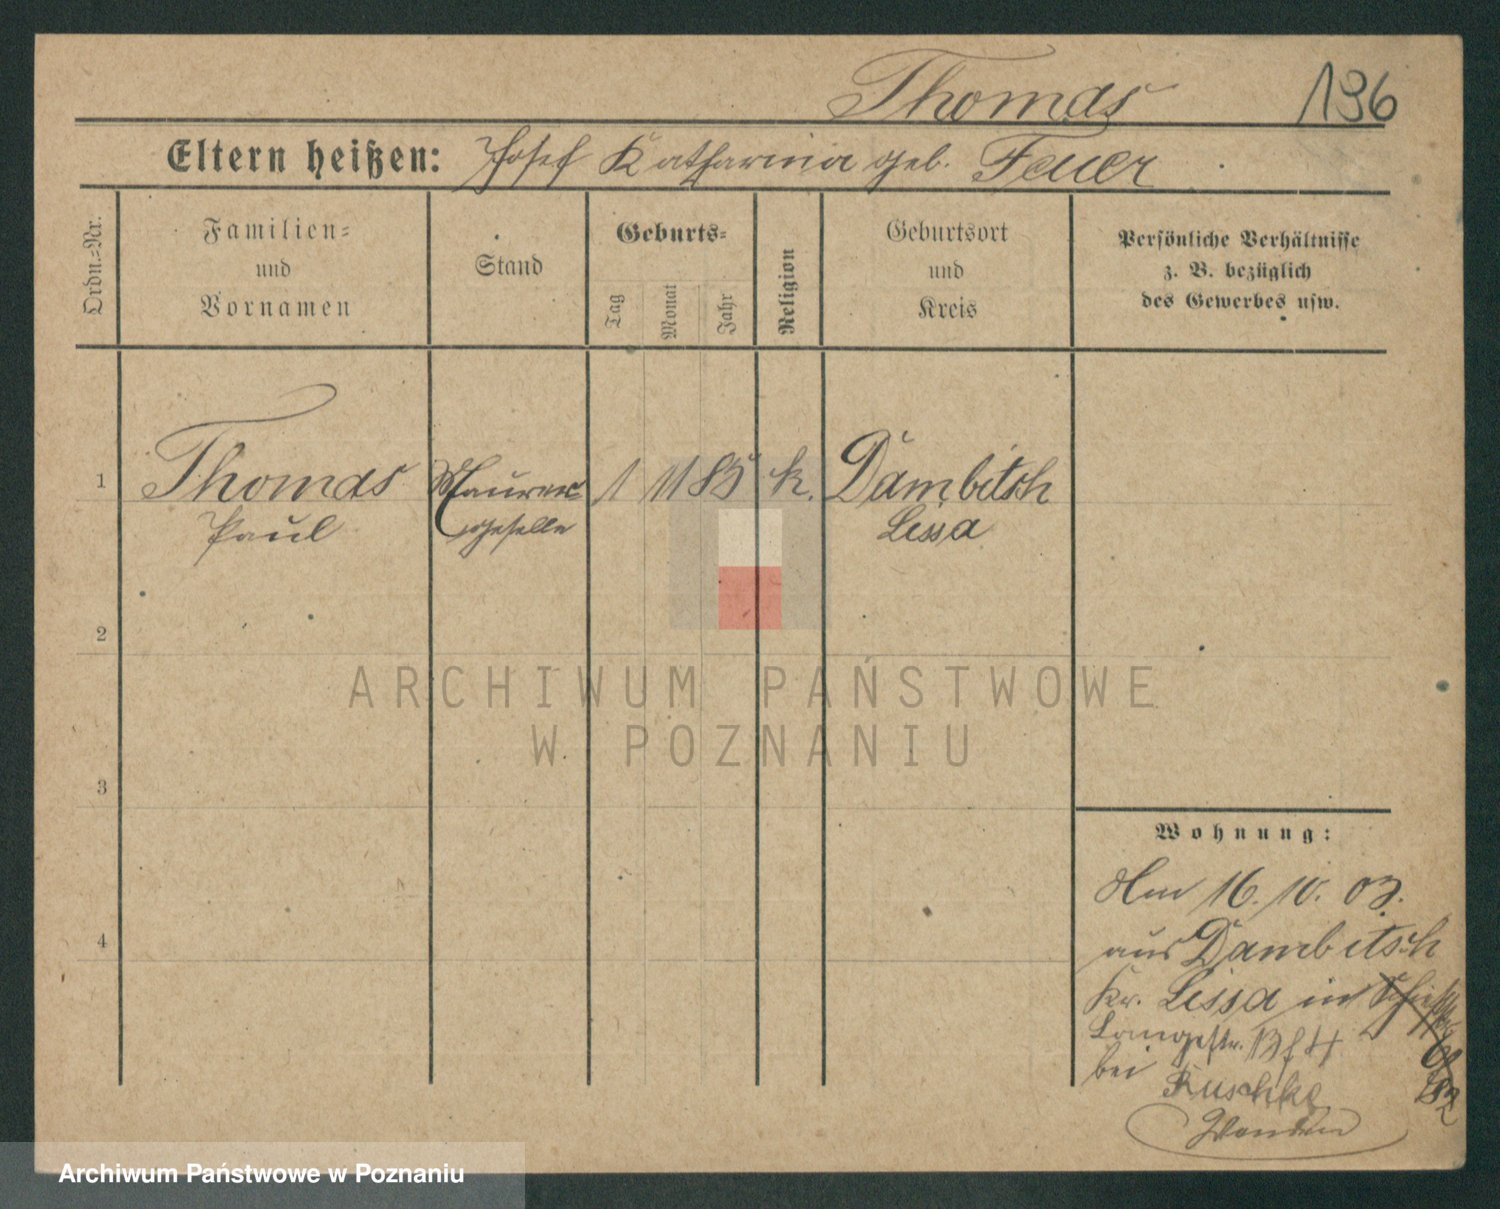 Thomas 196
Eltern heißen: Josef Katharina geb. Feuer
Ordn.-Nr.
Familien-
und
Vornamen
Stand
Geburts-
Tag
Monat
Jahr
Religion
Geburtsort
und
Kreis
Persönliche Verhältnisse
z. B. bezüglich
des Gewerbes usw.
1 Thomas Maurer= 1 11 85 k. Dambitsch
Paul geselle Lissa
2
3
4
ARCHIWUM PAŃSTWOWE
W POZNANIU
Wohnung:
Am 16. 10. 03.
aus Dambitsch
Kr. Lissa in
Langestr. 13
bei Ruschke
Archiwum Państwowe w Poznaniu